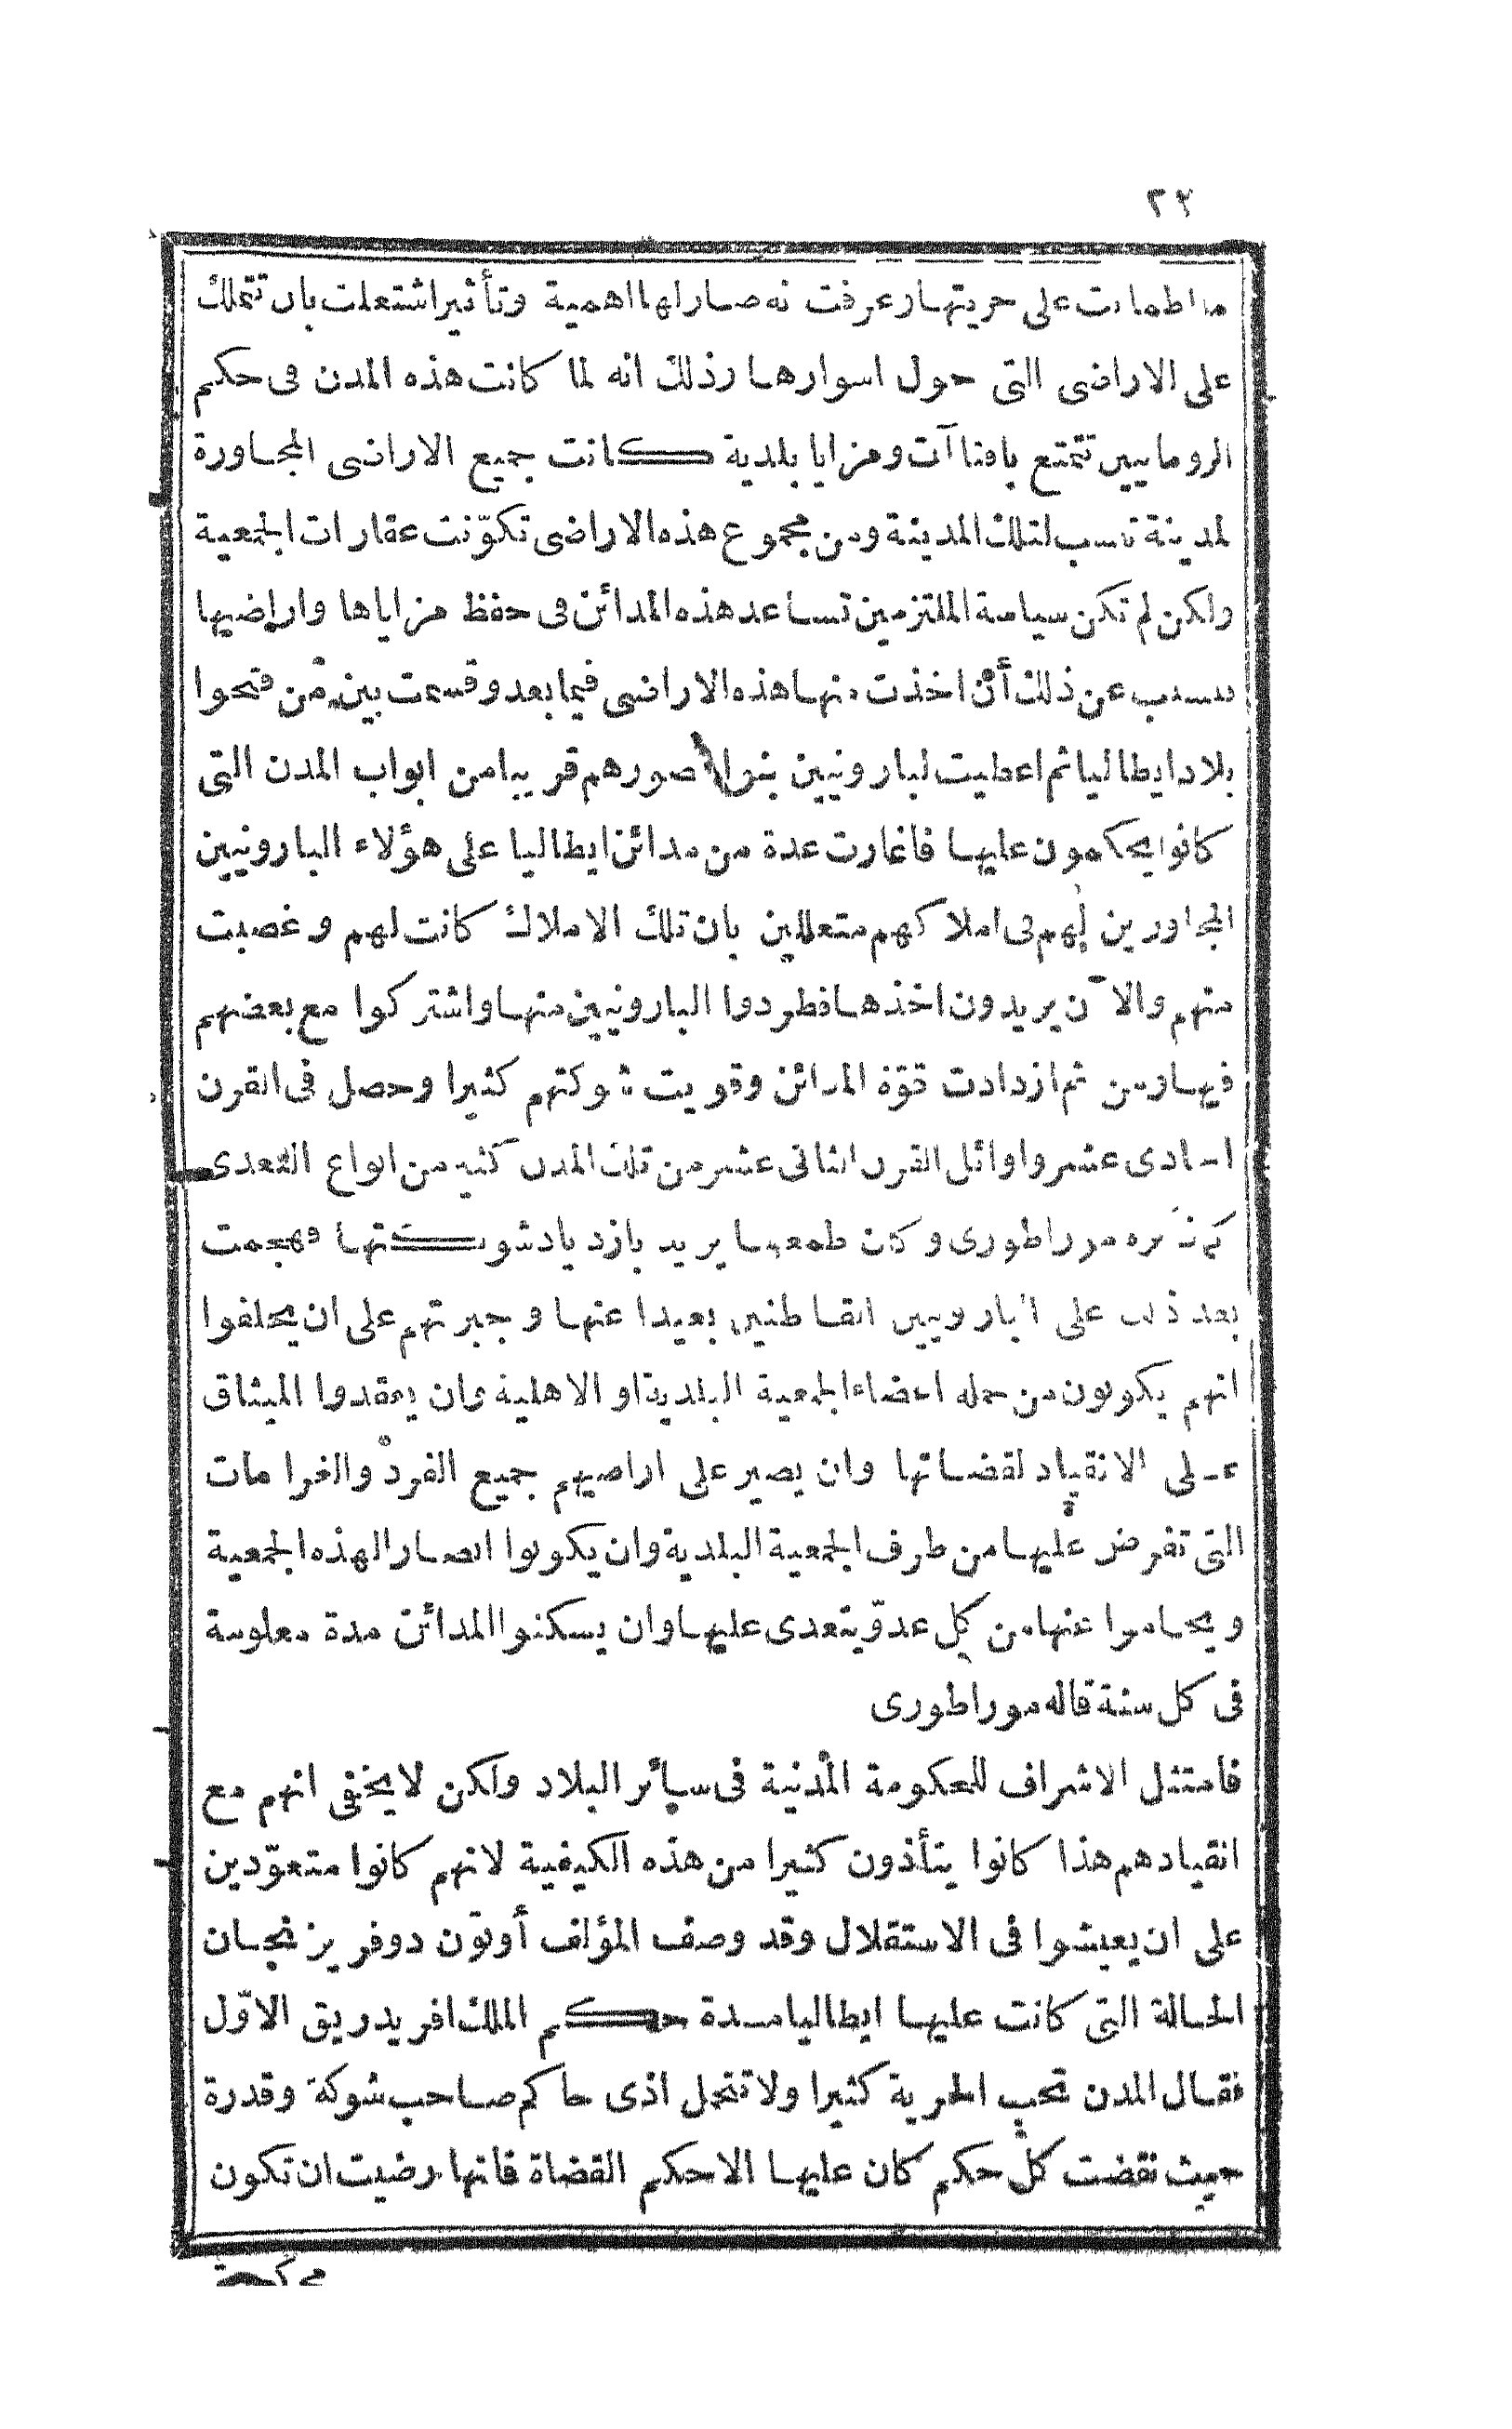 ٢٢
ما اطمانت على حريتها وعرفت انه صار لها اهمية وتأثير اشتعلت بان تتملك
على الاراضى التى حول اسوارها وذلك انه لما كانت هذه المدن فى حكم
الرومانيين تتمتع بامتيازات ومزايا بلدية كانت جميع الاراضى المجاورة
لمدينة تنسب لتلك المدينة ومن مجموع هذه الاراضى تكوّنت عقارات الجمعية
ولكن لم تكن سياسة الملتزمين تساعد هذه المدائن فى حفظ مزاياها واراضيها
بسبب عن ذلك أن اخذت منها هذه الاراضى فيما بعد وقسمت بين من فتحوا
بلاد ايطاليا ثم اعطيت لبارونيين بنوا قصورهم قريبا من ابواب المدن التى
كانوا يحكمون عليها فاغارت عدة من مدائن ايطاليا على هؤلاء البارونيين
المجاورين لهم فى املاكهم متعللين بان تلك الاملاك كانت لهم وغصبت
منهم والآن يريدون اخذها فطردوا البارونيين منها واشتركوا مع بعضهم
فيها ومن ثم ازدادت قوّة المدائن وقويت شوكتهم كثيرا وحصل فى القرن
الحادى عشر واوائل القرن الثانى عشر من تلك المدن كثير من انواع التعدى
كما ذكره موراطورى وكان طمعها يزيد بازدياد شوكتها فهجمت
بعد ذلك على البارونيين القاطنين بعيدا عنها وجبرتهم على ان يحلفوا
انهم يكونون من جملة اعضاء الجمعية البلدية او الاهلية وان يعقدوا الميثاق
على الانقياد لقضاتها وان يصير على اراضيهم جميع الفرد والغرامات
التى تفرض عليها من طرف الجمعية البلدية وان يكونوا انصارا لهذه الجمعية
ويحاموا عنها من كل عدوّ يتعدى عليها وان يسكنوا المدائن مدة معلومة
فى كل سنة قاله موراطورى
فامتثل الاشراف للحكومة المدنية فى سائر البلاد ولكن لا يخفى انهم مع
انقيادهم هذا كانوا يتأذون كثيرا من هذه الكيفية لانهم كانوا متعوّدين
على ان يعيشوا فى الاستقلال وقد وصف المؤلف أوتون دوفريزنجان
الحالة التى كانت عليها ايطاليا مدة حكم الملك افريدريق الاوّل
فقال المدن تحب الحرية كثيرا ولا تتحمل اذى حاكم صاحب شوكة وقدرة
حيث نقضت كل حكم كان عليها الا حكم القضاة فانها رضيت ان تكون